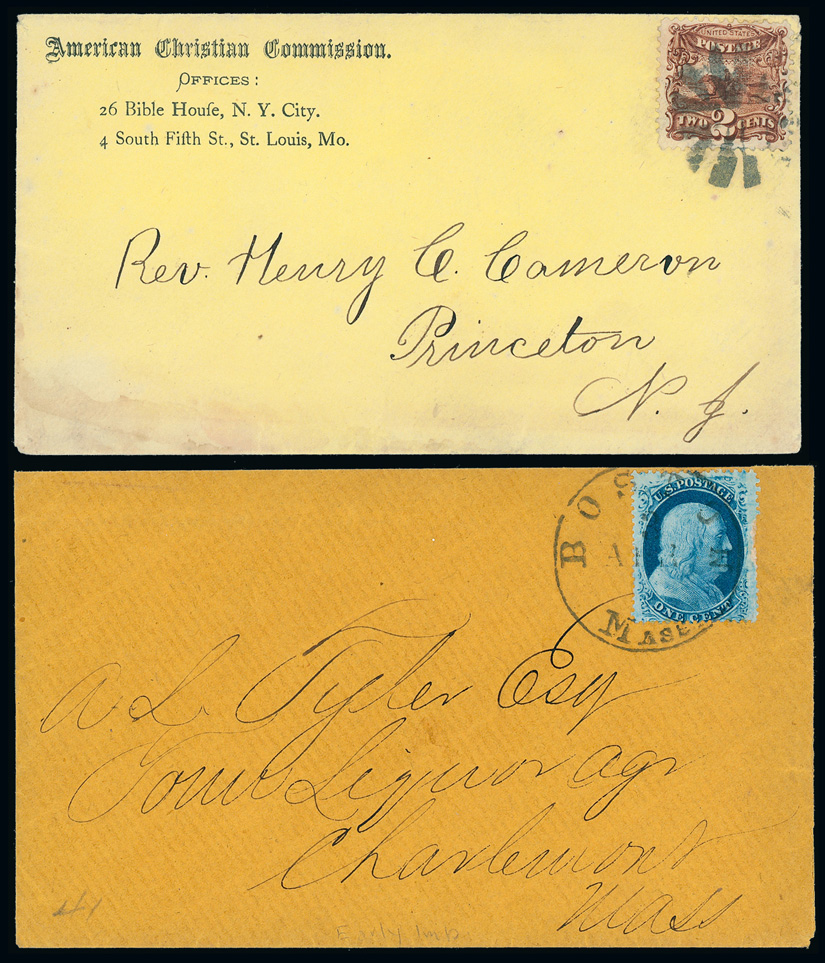 American Christian Commission.
OFFICES:
26 Bible Houſe, N. Y. City.
4 South Fifth St., St. Louis, Mo.
UNITED STATES
POSTAGE
TWO 2 CENTS
Rev. Henry C. Cameron
Princeton
N. J.
BOSTON
U.S. POSTAGE
ONE CENT
MASS
A. L. Tyler Esq
Town Liquor Agt
Charlemont
Mass
41
Early Imp